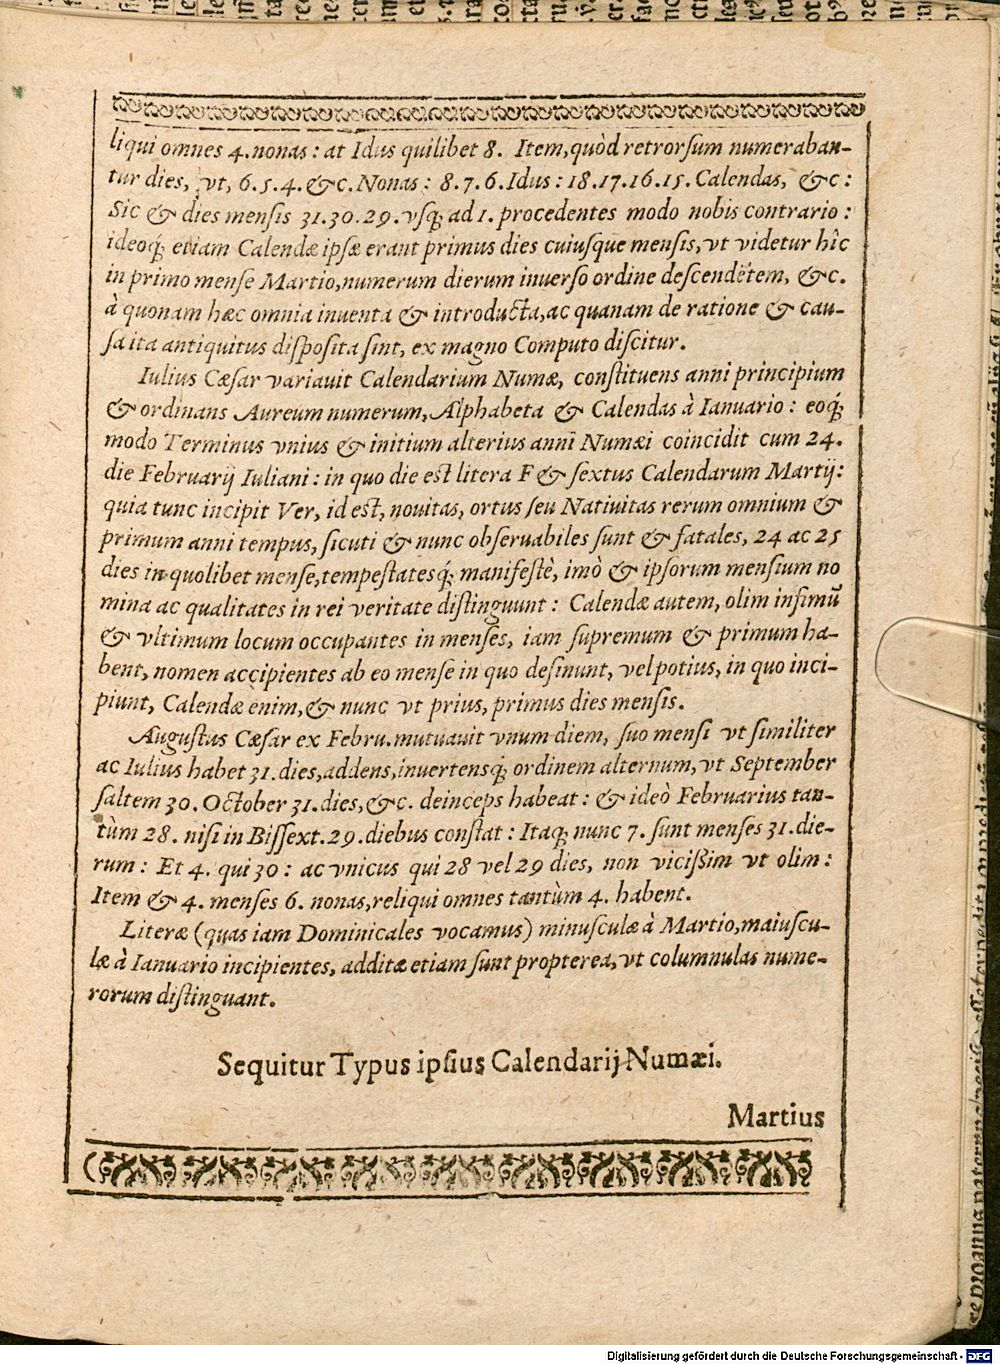 liqui omnes 4. nonas : at Idus quilibet 8. Item, quòd retrorſum numeraban-
tur dies, vt, 6. 5. 4. &c. Nonas : 8. 7. 6. Idus : 18. 17. 16. 15. Calendas, &c :
Sic & dies menſis 31. 30. 29. vſq́; ad 1. procedentes modo nobis contrario :
ideoq́; etiam Calendæ ipſæ erant primus dies cuiuſque menſis, vt videtur hîc
in primo menſe Martio, numerum dierum inuerſo ordine deſcendētem, &c.
à quonam hæc omnia inuenta & introducta, ac quanam de ratione & cau-
ſa ita antiquitus diſpoſita ſint, ex magno Computo diſcitur.
Iulius Cæſar variauit Calendarium Numæ, conſtituens anni principium
& ordinans Aureum numerum, Alphabeta & Calendas à Ianuario : eoq́;
modo Terminus vnius & initium alterius anni Numæi coincidit cum 24.
die Februarij Iuliani : in quo die est litera F & ſextus Calendarum Martij :
quia tunc incipit Ver, id est, nouitas, ortus ſeu Natiuitas rerum omnium &
primum anni tempus, ſicuti & nunc obſeruabiles ſunt & fatales, 24 ac 25
dies in quolibet menſe, tempeſtatesq́; manifeſtè, imò & ipſorum menſium no
mina ac qualitates in rei veritate diſtinguunt : Calendæ autem, olim infimū
& vltimum locum occupantes in menſes, iam ſupremum & primum ha-
bent, nomen accipientes ab eo menſe in quo deſinunt, vel potius, in quo inci-
piunt, Calendæ enim, & nunc vt prius, primus dies menſis.
Auguſtus Cæſar ex Febru. mutuauit vnum diem, ſuo menſi vt ſimiliter
ac Iulius habet 31. dies, addens, inuertensq́; ordinem alternum, vt September
ſaltem 30. October 31. dies, &c. deinceps habeat : & ideò Februarius tan-
tùm 28. niſi in Biſſext. 29. diebus conſtat : Itaq́; nunc 7. ſunt menſes 31. die-
rum : Et 4. qui 30 : ac vnicus qui 28 vel 29 dies, non viciſsim vt olim :
Item & 4. menſes 6. nonas, reliqui omnes tantùm 4. habent.
Literæ (quas iam Dominicales vocamus) minuſculæ à Martio, maiuſcu-
læ à Ianuario incipientes, additæ etiam ſunt propterea, vt columnulas nume-
rorum diſtinguant.
Sequitur Typus ipſius Calendarij Numæi.
Martius
Digitalisierung gefördert durch die Deutsche Forschungsgemeinschaft - DFG